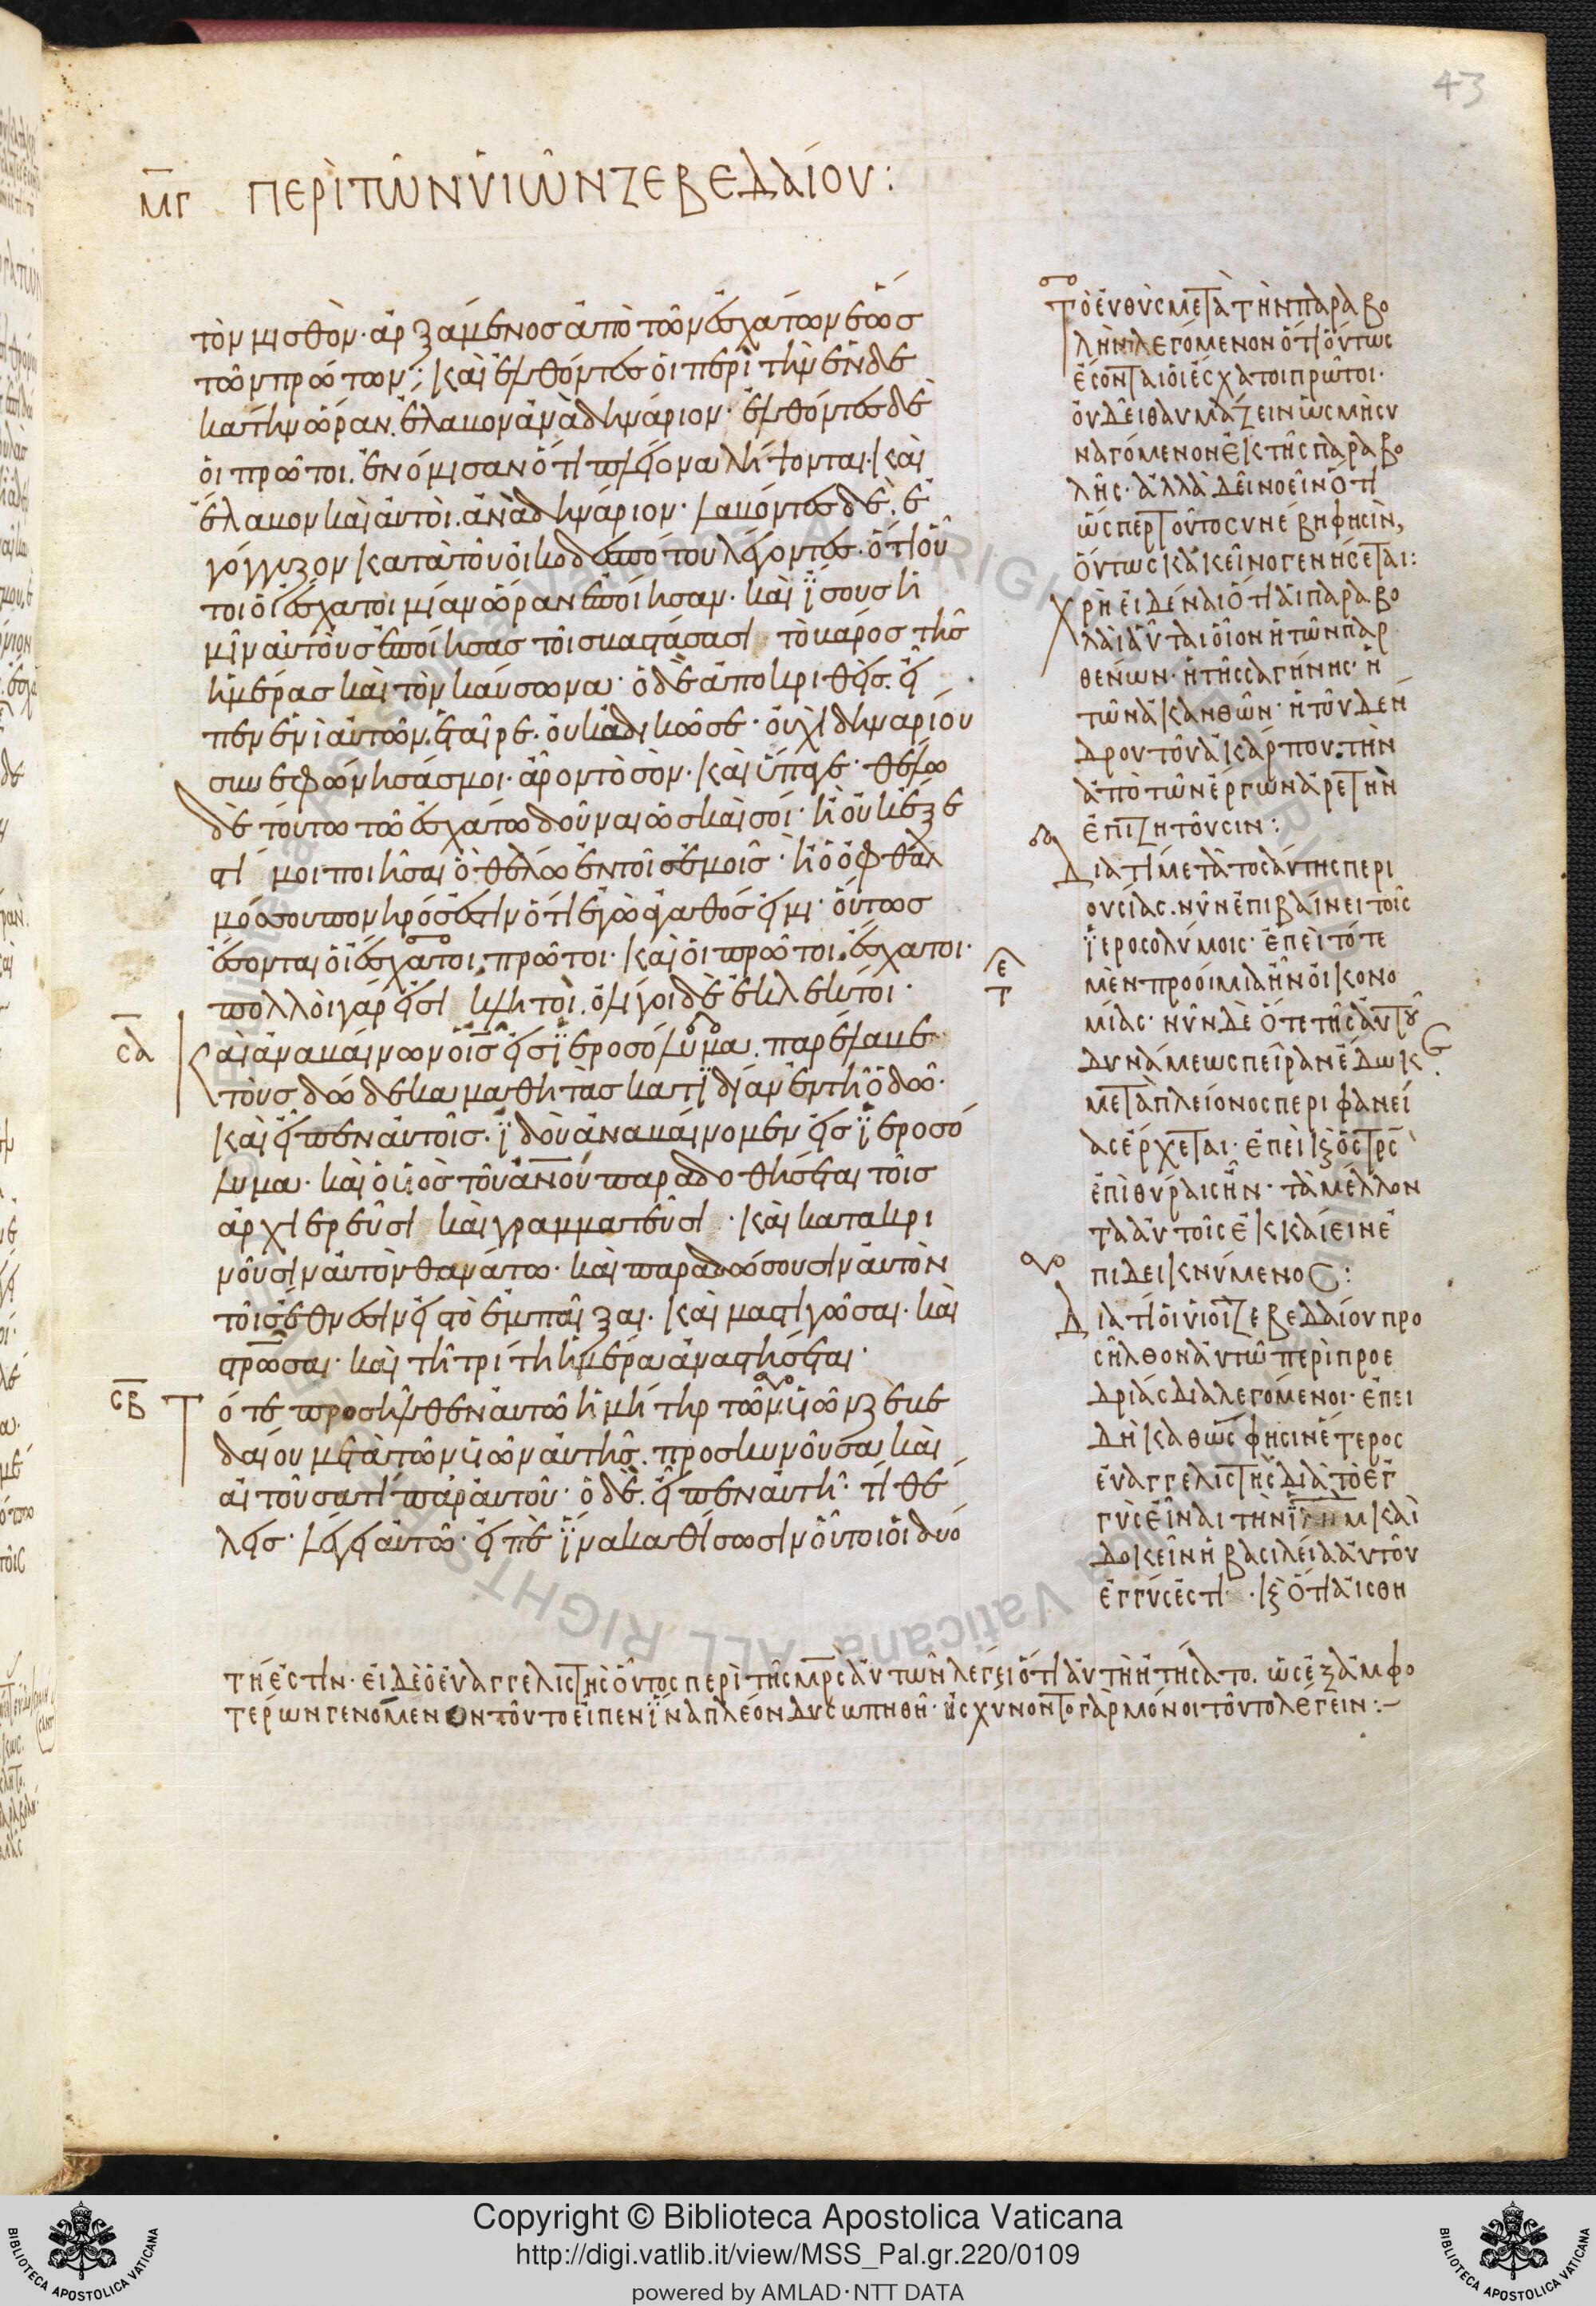 43
μγ περὶ τῶν υἱῶν ζεβεδαίου:
τὸν μισθὸν· ἀρξάμενος ἀπὸ τῶν ἐσχάτων ἕως
τῶν πρώτων; καὶ ἐλθόντες οἱ περὶ τὴν ἑνδε
κάτην ὥραν. ἔλαβον ἀνὰ δηνάριον· ἐλθόντες δὲ
οἱ πρῶτοι. ἐνόμισαν ὅτι πλείονα λήψονται· καὶ
ἔλαβον καὶ αὐτοὶ. ἀνὰ δηνάριον· λαβόντες δὲ. ἐ
γόγγυζον κατὰ τοῦ οἰκοδεσπότου λέγοντες· ὅτι οὗ
τοι οἱ ἔσχατοι μίαν ὥραν ἐποίησαν· καὶ ἴσους ἡ
μῖν αὐτοὺς ἐποίησας τοῖς βαστάσασι τὸ βάρος τῆς
ἡμέρας καὶ τὸν καύσωνα· ὁ δὲ ἀποκριθεὶς. εἶ
πεν ἑνὶ αὐτῶν. ἑταῖρε. οὐκ ἀδικῶ σε· οὐχὶ δηναρίου
συνεφώνησάς μοι· ἆρον τὸ σὸν· καὶ ὕπαγε· θέλω
δὲ τούτω τῶ ἐσχάτω δοῦναι ὡς καὶ σοί· ἢ οὐκ ἔξε
στί μοι ποιῆσαι ὃ θέλω ἐν τοῖς ἐμοῖς· ἢ ὁ ὀφθαλ
μός σου πονηρός ἐστιν ὅτι ἐγὼ ἀγαθός εἰμι· οὕτως
ἔσονται οἱ ἔσχατοι πρῶτοι· καὶ οἱ πρῶτοι. ἔσχατοι·
πολλοὶ γάρ εἰσι κλητοὶ. ὀλίγοι δὲ ἐκλεκτοί·
σα καὶ ἀναβαίνων ὁ ις εἰς ἱεροσόλυμα. παρέλαβε
τοὺς δώδεκα μαθητὰς κατ ἰδίαν ἐν τῆ ὁδῶ·
καὶ εἶπεν αὐτοῖς· ἰδοὺ ἀναβαίνομεν εἰς ἱεροσό
λυμα· καὶ ὁ υἱὸς τοῦ ανου παραδοθήσεται τοῖς
ἀρχιερεῦσι καὶ γραμματεῦσι· καὶ κατακρι
νοῦσιν αὐτὸν θανάτω· καὶ παραδώσουσιν αὐτὸν
τοῖς ἔθνεσιν εἰς τὸ ἐμπαῖξαι· καὶ μαστιγῶσαι· καὶ
στρωσαι· καὶ τῆ τρίτη ἡμέρα ἀναστήσεται·
σβ τότε προσῆλθεν αὐτῶ ἡ μήτηρ τῶν υἱῶν ζεβε
δαίου μετὰ τῶν υἱῶν αὐτῆς. προσκυνοῦσα καὶ
αἰτοῦσα τί παρ αὐτοῦ· ὁ δὲ. εἶπεν αὐτῆ· τί θέ
λεις· λέγει αὐτῶ· εἰπὲ ἵνα καθίσωσιν οὗτοι οἱ δύο
Τὸ εὐθὺς μετὰ τὴν παραβο
λὴν λεγόμενον ὅτι οὕτως
ἔσονται οἱ ἔσχατοι πρῶτοι·
οὐ δεῖ θαυμάζειν ὡς μὴ συ
ναγόμενον ἐκ τῆς παραβο
λῆς· ἀλλὰ δεῖ νοεῖν ὅτι
ὥσπερ τοῦτο συνέβη φησὶν,
οὕτως κἀκεῖνο γενήσεται:
χρὴ εἰδέναι ὅτι αἱ παραβο
λαὶ αὗται οἷον ἡ τῶν παρ
θένων· ἡ τῆς σαγήνης· ἡ
τῶν ἀκανθῶν· ἡ τοῦ δέν
δρου τοῦ ἀκάρπου· τὴν
ἀπὸ τῶν ἔργων ἀρετὴν
ἐπιζητοῦσιν:
Διατί μετὰ τοσαύτης περι
ουσίας. νῦν ἐπιβαίνει τοῖς
ἱεροσολύμοις· ἐπεὶ τότε
μὲν προοίμια ἦν οἰκονο
μίας· νῦν δὲ ὅτε τῆς αὐτοῦ
δυνάμεως πεῖραν ἔδωκε
μετὰ πλείονος περιφανεί
ας ἔρχεται· ἐπεὶ καὶ ὁ στρς
ἐπὶ θύραις ἦν· τὰ μέλλον
τα αὐτοῖς ἐκκαίειν ἐ
πιδεικνύμενος:
Διατί οἱ υἱοὶ ζεβεδαίου προ
σῆλθον αὐτῶ περὶ προε
δρίας διαλεγόμενοι· ἐπει
δὴ καθώς φησιν ἕτερος
εὐαγγελιστὴς διὰ τὸ ἐγ
γὺς εἶναι τὴν ιλημ καὶ
δοκεῖν ἡ βασιλεία αὐτοῦ
ἐγγύς ἐστι· καὶ ὅτι αἰσθη
τή ἐστιν· εἰ δὲ ὁ εὐαγγελιστὴς οὗτος περὶ τῆς μρς αὐτῶν λέγει ὅτι αὐτὴ ἠτήσατο. ὡς ἐξ ἀμφο
τέρων γενόμενον τοῦτο εἶπεν ἵνα πλέον δυσωπηθῆ· ἠσχύνοντο γὰρ μόνοι τοῦτο λέγειν:–
Copyright © Biblioteca Apostolica Vaticana
http://digi.vatlib.it/view/MSS_Pal.gr.220/0109
powered by AMLAD·NTT DATA